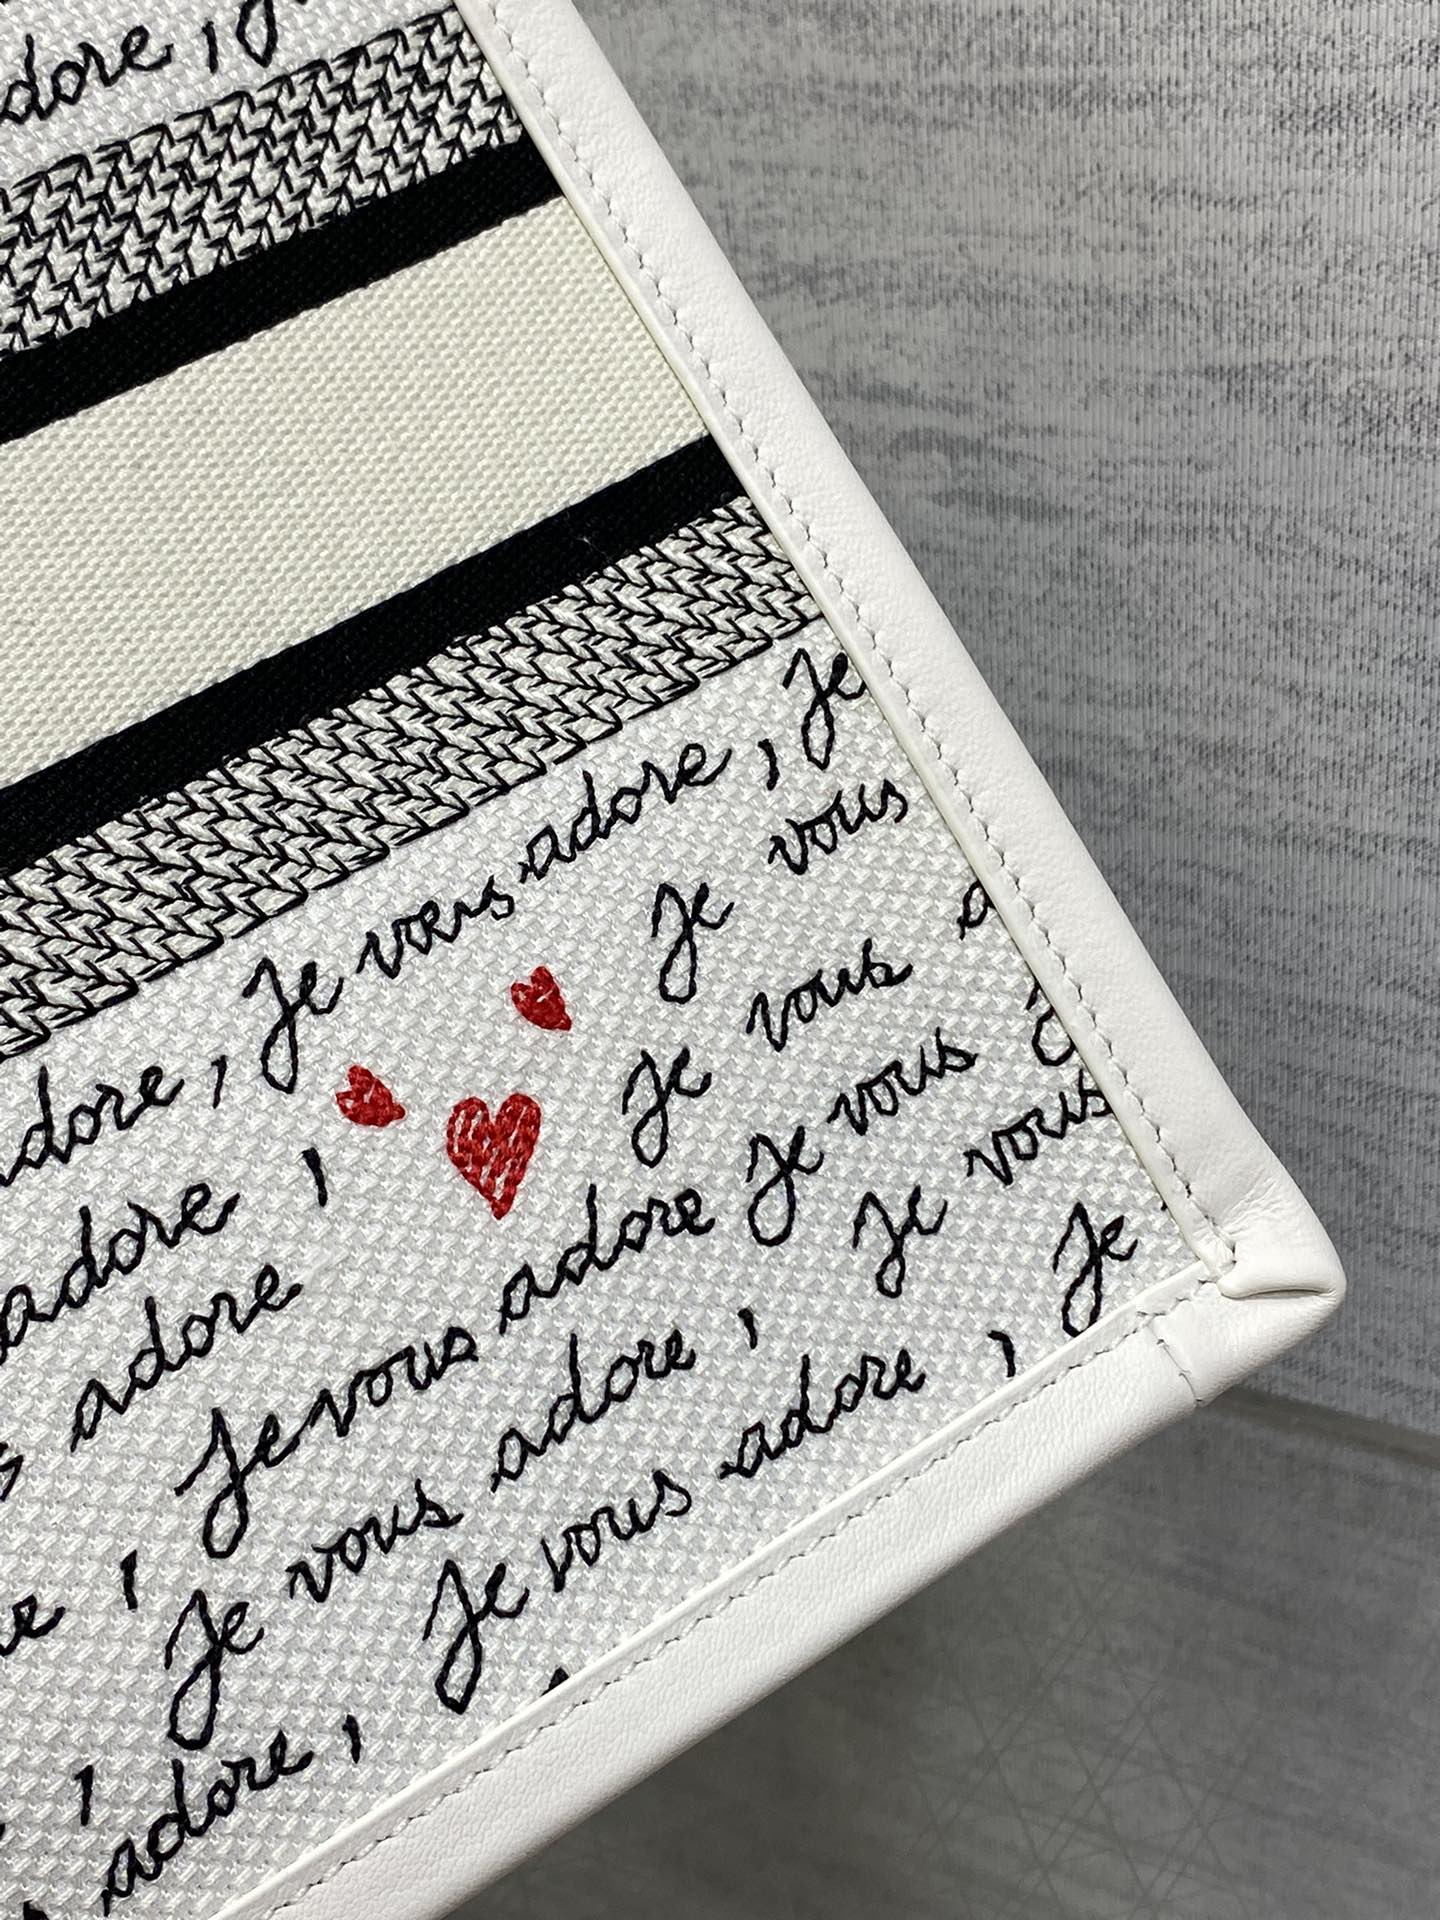 dore, J
Je vous adore, Je
adore, Je vous
adore, Je vous
adore Je vous adore Je vous
Je vous adore, Je vous
Je vous adore, Je
adore,